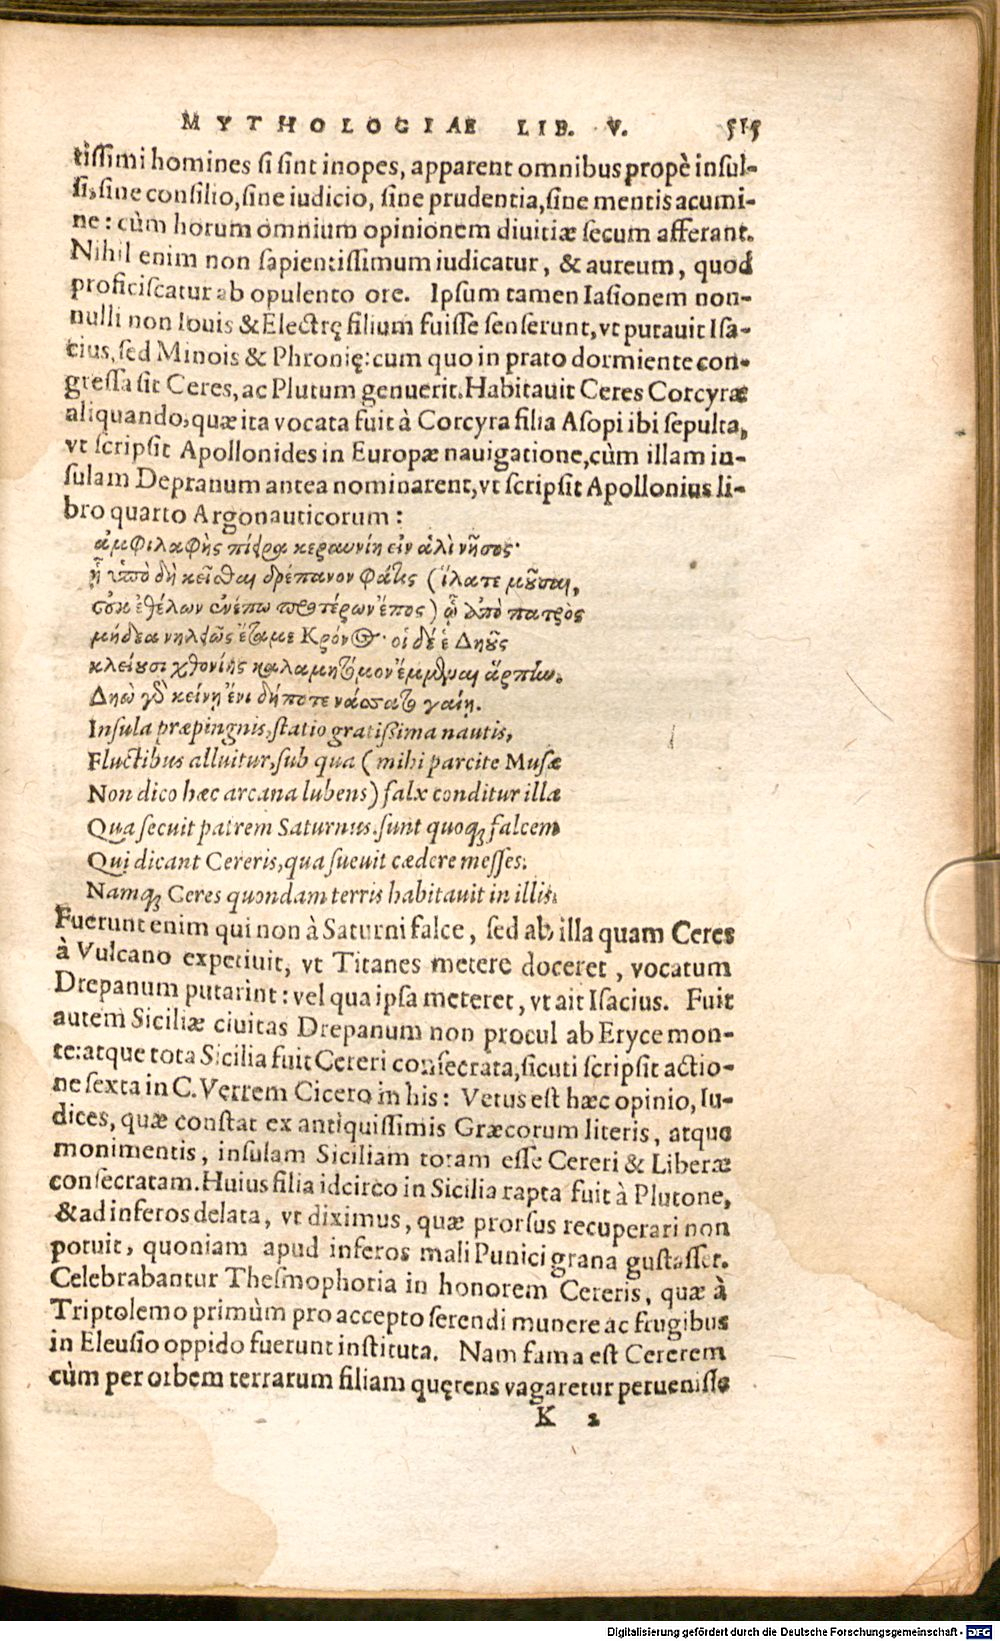 MYTHOLOGIAE LIB. V. 515
tissimi homines si sint inopes, apparent omnibus propè insul-
si, sine consilio, sine iudicio, sine prudentia, sine mentis acumi-
ne: cùm horum omnium opinionem diuitiæ secum afferant.
Nihil enim non sapientissimum iudicatur, & aureum, quod
proficiscatur ab opulento ore. Ipsum tamen Iasionem non-
nulli non Iouis & Electrę filium fuisse senserunt, vt putauit Isa-
cius, sed Minois & Phronię: cum quo in prato dormiente con-
gressa sit Ceres, ac Plutum genuerit. Habitauit Ceres Corcyræ
aliquando, quæ ita vocata fuit à Corcyra filia Asopi ibi sepulta,
vt scripsit Apollonides in Europæ nauigatione, cùm illam in-
sulam Depranum antea nominarent, vt scripsit Apollonius li-
bro quarto Argonauticorum:
ἀμφιλαφὴς πίειρα κεραυνίη εἰν ἁλὶ νῆσος·
ᾗ ὑπὸ δὴ κεῖσθαι δρέπανον φάτις (ἵλατε μοῦσαι,
οὐκ ἐθέλων ἐνέπω προτέρων ἔπος) ᾧ ἀπὸ πατρὸς
μήδεα νηλειῶς ἔταμε Κρόνος· οἱ δέ ἑ Δηοῦς
κλείουσι χθονίης καλαμητόμον ἔμμεναι ἅρπην.
Δηὼ γὰρ κείνῃ ἔνι δήποτε νάσσατο γαίῃ.
Insula præpinguis, statio gratissima nautis,
Fluctibus alluitur, sub qua (mihi parcite Musæ
Non dico hæc arcana lubens) falx conditur illa
Qua secuit patrem Saturnus. sunt quoq; falcem
Qui dicant Cereris, qua sueuit cædere messes.
Namq; Ceres quondam terris habitauit in illis.
Fuerunt enim qui non à Saturni falce, sed ab illa quam Ceres
à Vulcano expetiuit, vt Titanes metere doceret, vocatum
Drepanum putarint: vel qua ipsa meteret, vt ait Isacius. Fuit
autem Siciliæ ciuitas Drepanum non procul ab Eryce mon-
te: atque tota Sicilia fuit Cereri consecrata, sicuti scripsit actio-
ne sexta in C. Verrem Cicero in his: Vetus est hæc opinio, Iu-
dices, quæ constat ex antiquissimis Græcorum literis, atque
monimentis, insulam Siciliam totam esse Cereri & Liberæ
consecratam. Huius filia idcirco in Sicilia rapta fuit à Plutone,
& ad inferos delata, vt diximus, quæ prorsus recuperari non
potuit, quoniam apud inferos mali Punici grana gustasset.
Celebrabantur Thesmophoria in honorem Cereris, quæ à
Triptolemo primùm pro accepto serendi munere ac frugibus
in Eleusio oppido fuerunt instituta. Nam fama est Cererem
cùm per orbem terrarum filiam quęrens vagaretur peruenisse
K 2
Digitalisierung gefördert durch die Deutsche Forschungsgemeinschaft - DFG